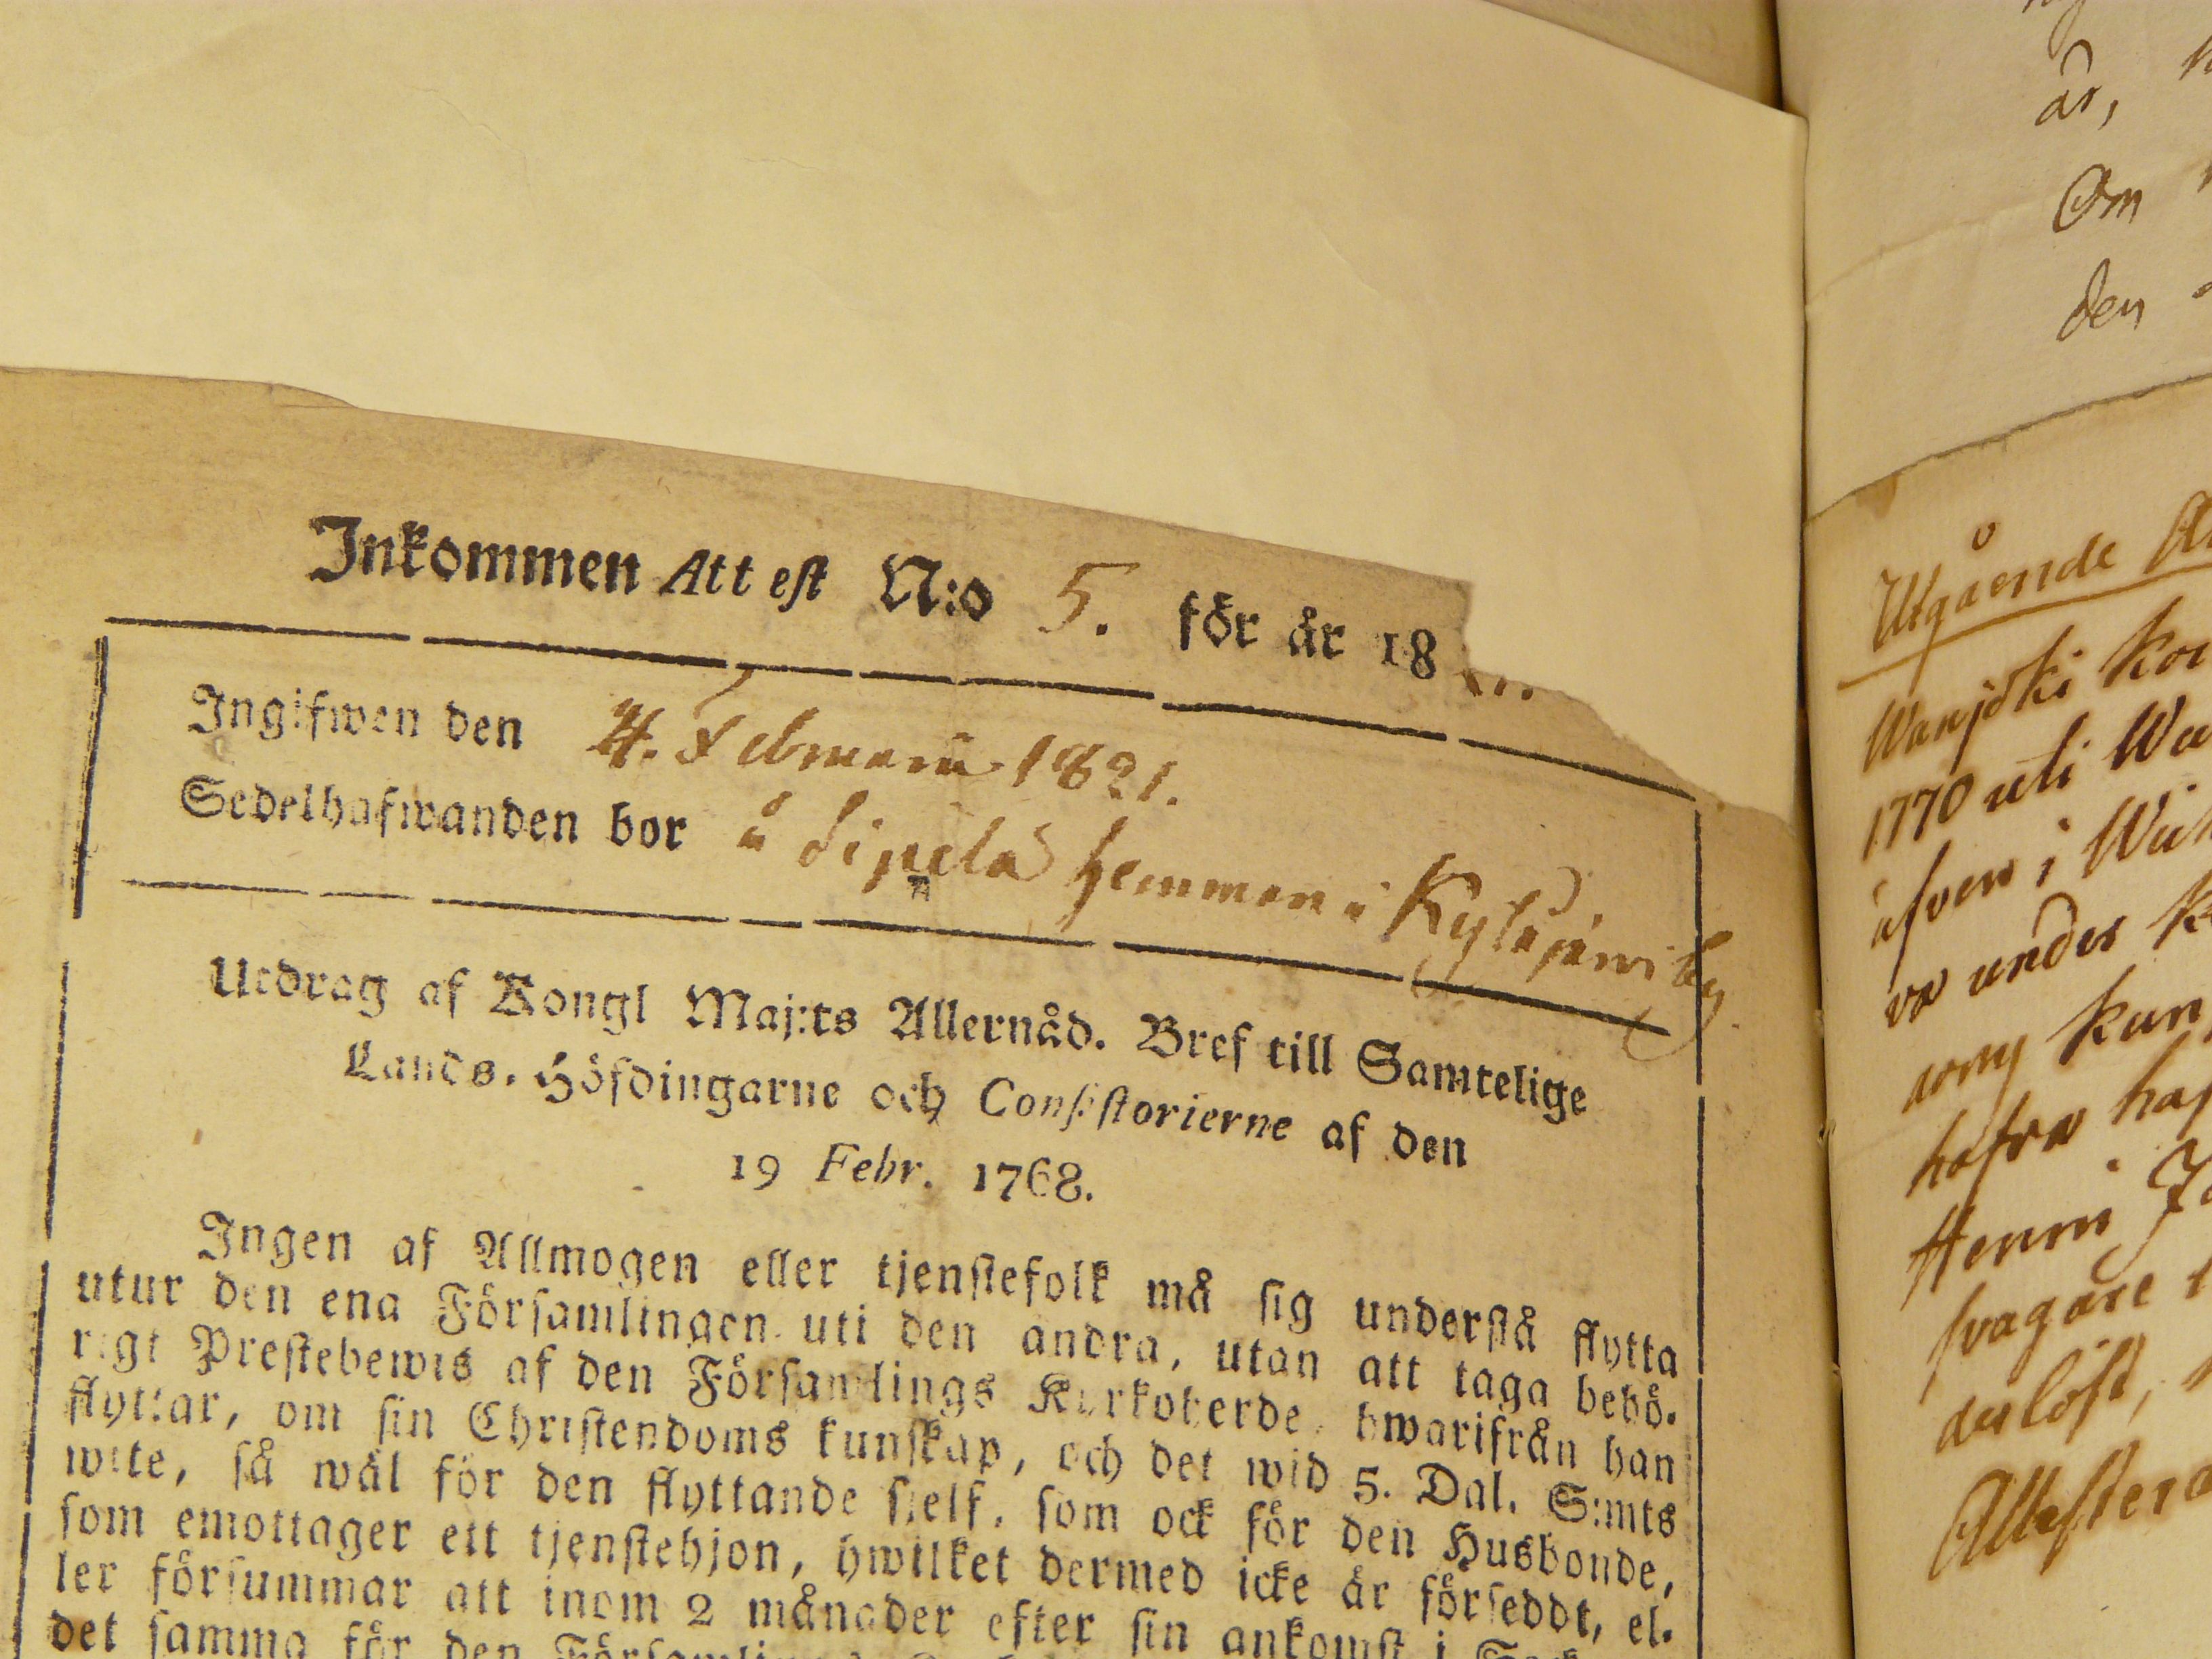 Inkommen Attest N:o 5. för år 18...
Ingifwen den 4. Februarii 1821.
Sedelhafwanden bor å Sipilä hemman i Kyläjärwi by.
Utdrag af Kongl Maj:ts Allernåd. Bref till Samtelige
Lands-Höfdingarne och Consistorierne af den
19 Febr. 1768.
Ingen af Allmogen eller tjenstefolk må sig understå flytta
utur den ena Församlingen uti den andra, utan att taga behö-
rigt Prestebewis af den Församlings Kyrkoherde, hwarifrån han
flyttar, om sin Christendoms kunskap, och det wid 5. Dal. S:mts
wite, så wäl för den flyttande sjelf, som ock för den Husbonde,
som emottager ett tjenstehjon, hwilket dermed icke är förseddt, el-
ler försummar att inom 2 månader efter sin ankomst i
det samma för den
år,
Om
den
Utgående
Wanjöki
1770 uti
äfven i
va under
kun
hafva
Henni
svagare
derlöst,